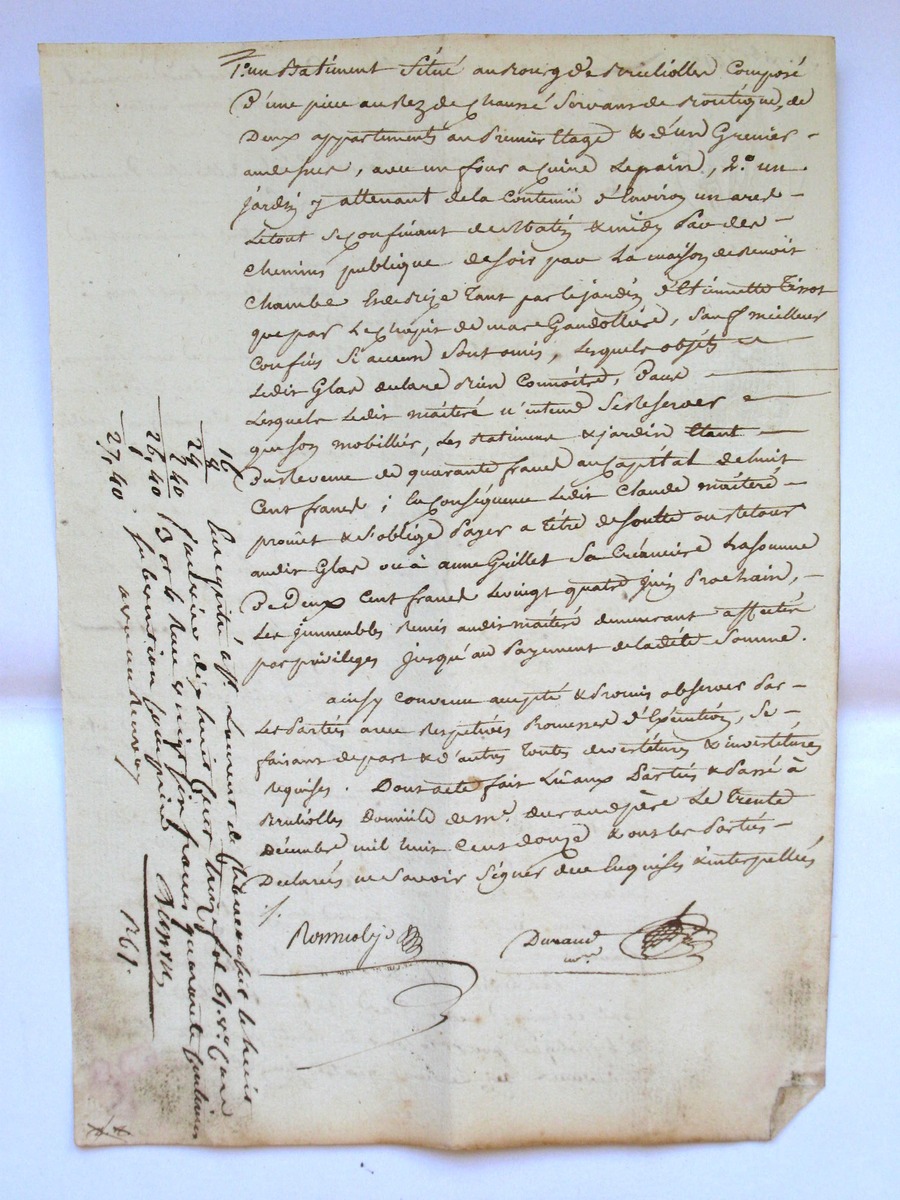 1.° un Batiment Situé au Bourg de Brullolles Composé
d'une piece au Rez de Chaussé Servans de Boutique, de
Deux appartements au premier Etage & d'un Grenier
au dessus, avec un four a Cuire Le pain, 2.° un
jardin y attenant de la Contenüe d'Environ un ared
Letout Se Confinant de Matin & midy Par des
Chemins publique de soir par La maison de Benoit
Chambe & de Bize Tant par le jardin d'Etiennette Tissot
que par Le de marc Gaudollière, Sauf meilleurs
Confins Si aucun Sont omis, Lesquels objets
Ledit Glas declare Bien Connoitre, Dans
Lesquels Ledit n'intend Se Reserver
que son mobillier, Les Batiment & jardin Etant
Du Revenu de quarante francs au Capital de huit
Cent francs ; En Conséquence Ledit Claude
promet & S'oblige Payer a titre de Soulte ou Retour
audit Glas ou à anne Grillet Sa Créancière La Somme
De Deux Cent francs Le vingt quatre juin Prochain,
Les jmmeubles Remis audit demeurant affectés
par privileges jusqu'au Payement de ladite Somme.
ainsy Convenu accepté & Promis observer Par
Les Parties avec Respetives Promesses d'Exécution, Se
faisant de part & d'autres Toutes devestitures & investitures
Requises. Dont acte fait Lü aux Parties & Passé à
Brullolles Domicile de m.r Durand père Le Trente
Décembre mil huit Cent douze & ont les Parties
Declarés ne Savoir Signer de ce Enquises & interpellées
/.
Durand
n.re
16
8
29
2 40
26, 40
1
27, 40
Enregistré à St Laurent de Chamousset le huit
janvier dix huit Cent treize fol. 61. r.° Case
3 or Le Reçu vingt six francs quarante Centimes
subvention comprise